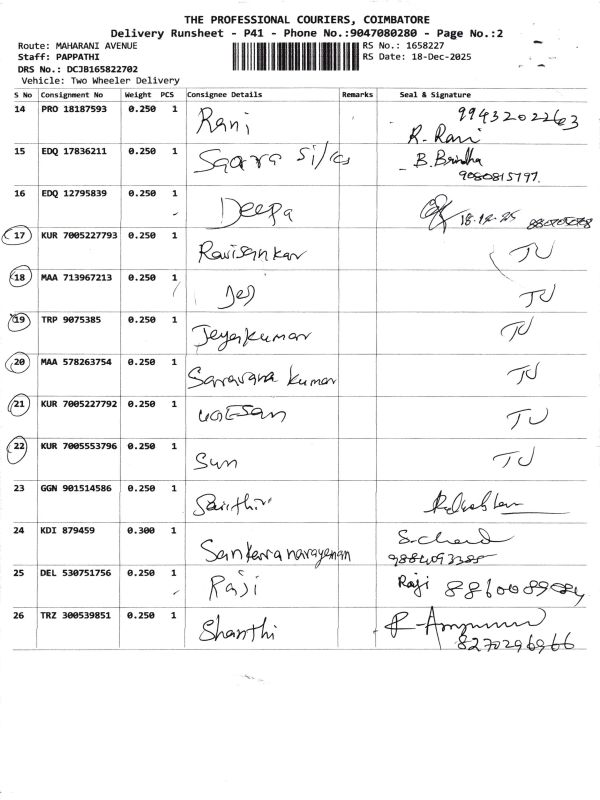 THE PROFESSIONAL COURIERS, COIMBATORE
Delivery Runsheet - P41 - Phone No.:9047080280 - Page No.:2
Route: MAHARANI AVENUE RS No.: 1658227
Staff: PAPPATHI RS Date: 18-Dec-2025
DRS No.: DCJB165822702
Vehicle: Two Wheeler Delivery
S No Consignment No Weight PCS Consignee Details Remarks Seal & Signature
14 PRO 18187593 0.250 1 Rani 9943202263
R. Rani
15 EDQ 17836211 0.250 1 Saara Silks B. Brindha
9080815797.
16 EDQ 12795839 0.250 1 Deepa 18-12-25
17 KUR 7005227793 0.250 1 Ravisankar TU
18 MAA 713967213 0.250 1 TU
19 TRP 9075385 0.250 1 Jeyakumar TU
20 MAA 578263754 0.250 1 Saravana Kumar TU
21 KUR 7005227792 0.250 1 TU
22 KUR 7005553796 0.250 1 Sun TU
23 GGN 901514586 0.250 1
24 KDI 879459 0.300 1 Sankaranarayanan S. Chand
25 DEL 530751756 0.250 1 Raji Raji
26 TRZ 300539851 0.250 1 Shanthi
8270296966